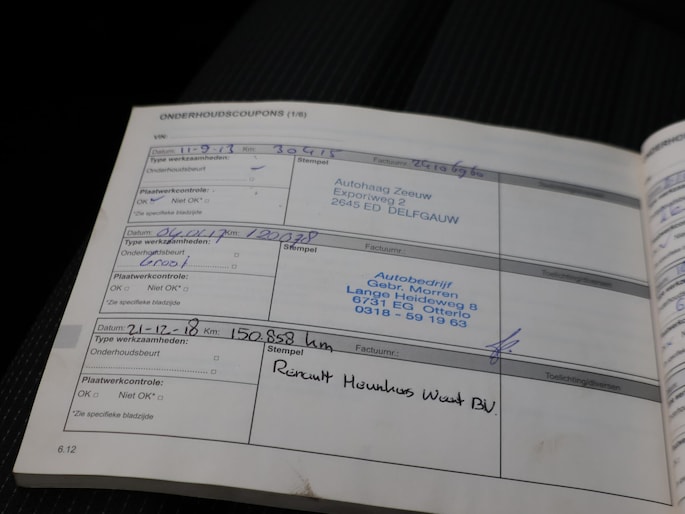 ONDERHOUDSCOUPONS (1/6)
VIN:
Datum: 11-9-13 Km: 30415 Factuurnr.:
Type werkzaamheden: Stempel Toelichting/diversen
Onderhoudsbeurt
Plaatwerkcontrole:
OK Niet OK*
*Zie specifieke bladzijde
Autohaag Zeeuw
Exporiweg 2
2645 ED DELFGAUW
Datum: 04.01.17 Km: 120078 Factuurnr.:
Type werkzaamheden: Stempel Toelichting/diversen
Onderhoudsbeurt
Groot
Plaatwerkcontrole:
OK Niet OK*
*Zie specifieke bladzijde
Autobedrijf
Gebr. Morren
Lange Heideweg 8
6731 EG Otterlo
0318 - 59 19 63
Datum: 21-12-18 Km: 150.858 km Factuurnr.:
Type werkzaamheden: Stempel Toelichting/diversen
Onderhoudsbeurt
Plaatwerkcontrole:
OK Niet OK*
*Zie specifieke bladzijde
Renault BV.
6.12